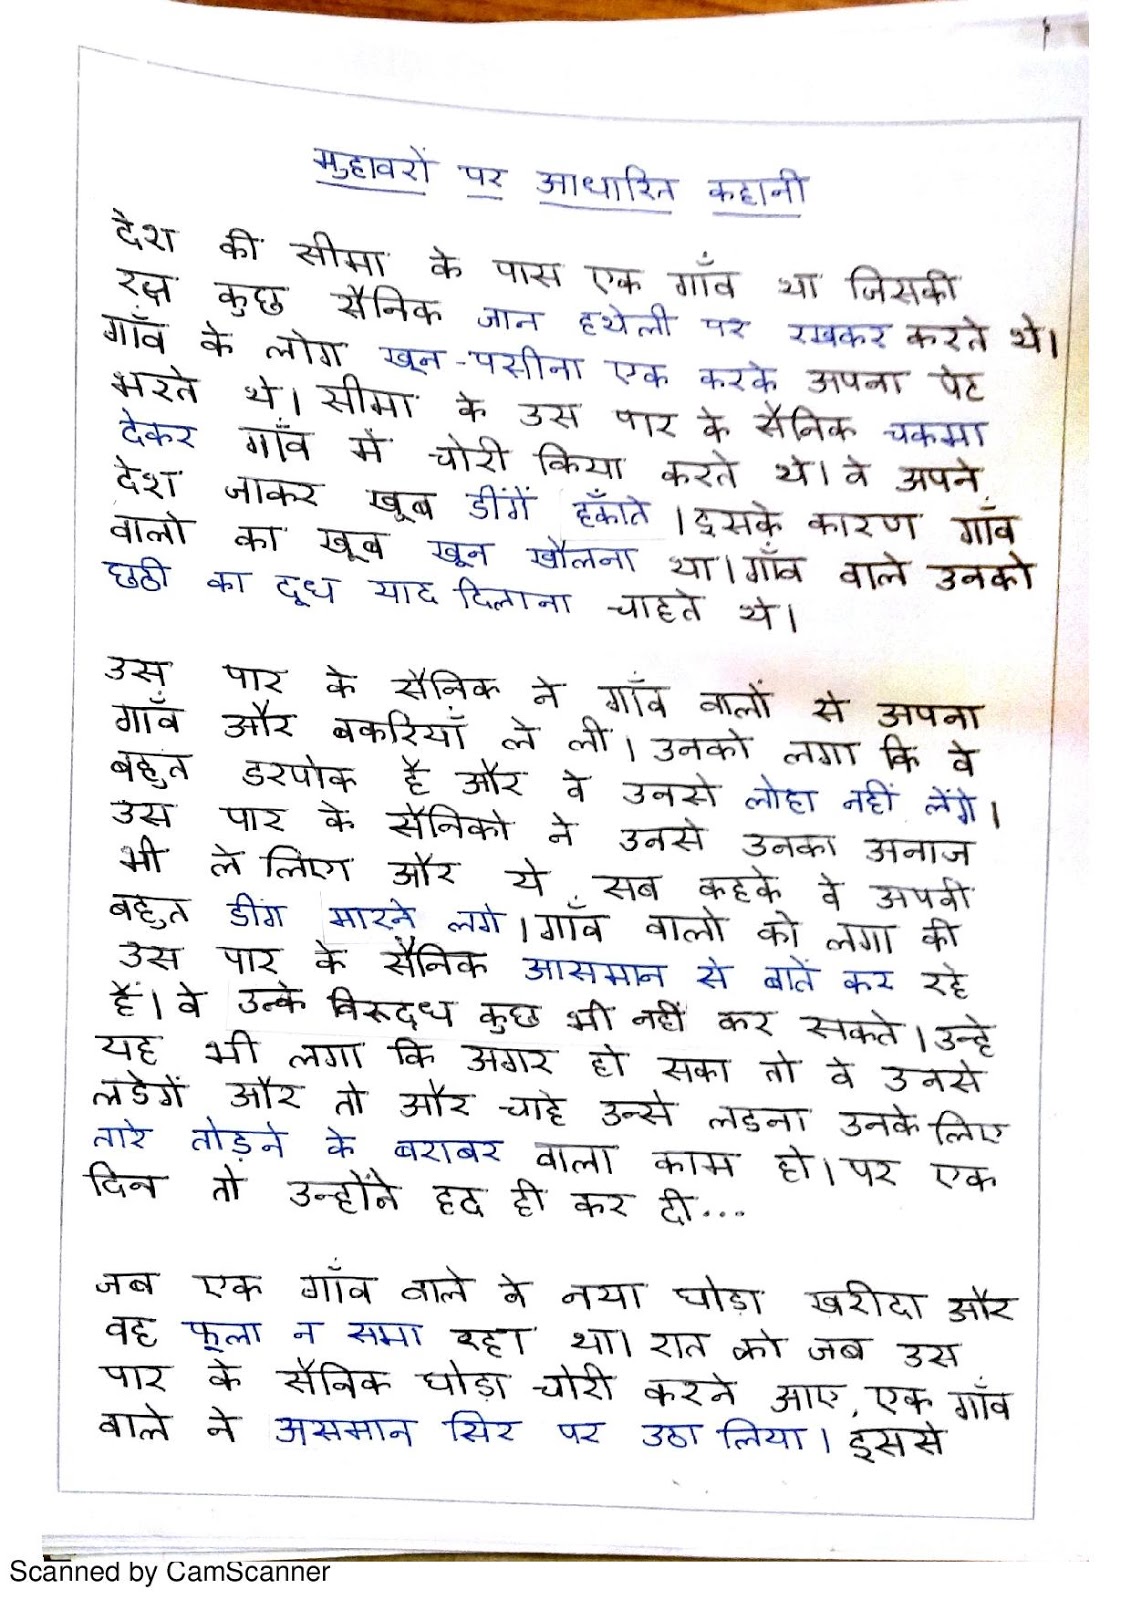 मुहावरों पर आधारित कहानी
देश की सीमा के पास एक गाँव था जिसकी
रक्ष कुछ सैनिक जान हथेली पर रखकर करते थे।
गाँव के लोग खून-पसीना एक करके अपना पेट
भरते थे। सीमा के उस पार के सैनिक चकमा
देकर गाँव में चोरी किया करते थे। वे अपने
देश जाकर खूब डींगें हँकाते। इसके कारण गाँव
वालो का खूब खून खौलना था। गाँव वाले उनको
छठी का दूध याद दिलाना चाहते थे।
उस पार के सैनिक ने गाँव वालों से अपना
गाँव और बकरियाँ ले ली। उनको लगा कि वे
बहुत डरपोक है और वे उनसे लोहा नहीं लेंगे।
उस पार के सैनिको ने उनसे उनका अनाज
भी ले लिए और ये सब कहके वे अपनी
बहुत डीग मारने लगे। गाँव वालो को लगा की
उस पार के सैनिक आसमान से बातें कर रहे
हैं। वे उन्के विरूदध कुछ भी नहीं कर सकते। उन्हे
यह भी लगा कि अगर हो सका तो वे उनसे
लडेगें और तो और चाहे उन्से लडना उनके लिए
तारे तोड़ने के बराबर वाला काम हो। पर एक
दिन तो उन्होंने हद ही कर दी...
जब एक गाँव वाले ने नया घोड़ा खरीदा और
वह फूला न समा रहा था। रात को जब उस
पार के सैनिक घोड़ा चोरी करने आए, एक गाँव
वाले ने असमान सिर पर उठा लिया। इससे
Scanned by CamScanner